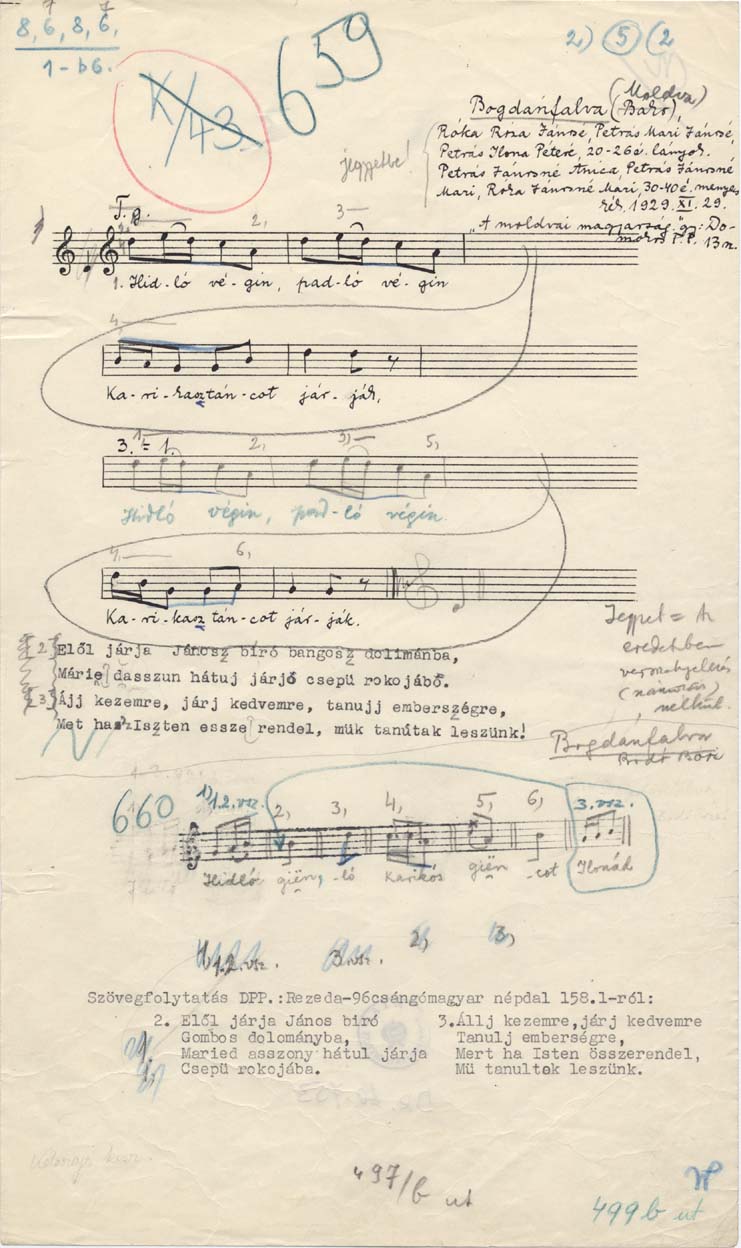 8, 6, 8, 6,
1-b6.
K/43.
659
2) 5 (2
(Moldva)
Bogdánfalva (Bako),
Róka Roza Jánosé, Petrás Mari Jánosé,
Petrás Ilona Péteré, 20-26 é. lányok.
Petrás Jánosné Anica, Petrás Jánosné
Mari, Roka Jánosné Mari, 30-40 é. menyes
kék. 1929. XI. 29.
"A moldvai magyarság." gy: Do-
mokos P. P. 13 n.
jegyzetbe!
T. g.
2, 3
1. Hid-ló vé-gin, pad-ló vé-gin
4,
Ka-ri-kasztán-cot jár-ják,
3. = 1.
1 2, 3, 5,
Hidló végin, pad-ló végin
4, 6,
Ka-ri-kasz tán-cot jár-ják.
2. Elől járja Jánosz bíró bangosz dolimánba,
Márie dasszun hátuj járjó csepü rokojábó.
3. Ájj kezemre, járj kedvemre, tanujj emberszégre,
Met ha Iszten essze rendel, mük tanútak leszünk!
eredetben
nélkül.
Bogdánfalva
660
1) 1.2. vsz. 2, 3, 4, 5, 6, 3. vsz.
Hidló giën, -ló Karikós giën -cot Ilonád
1.2. vsz. 3. vsz. 2, 3,
Szövegfolytatás DPP.:Rezeda-96csángómagyar népdal 158.l-ról:
2. Elől járja János biró
Gombos dolományba,
Maried asszony hátul járja
Csepü rokojába.
3.Állj kezemre,járj kedvemre
Tanulj emberségre,
Mert ha Isten összerendel,
Mü tanultok leszünk.
497/b ut
499 b ut